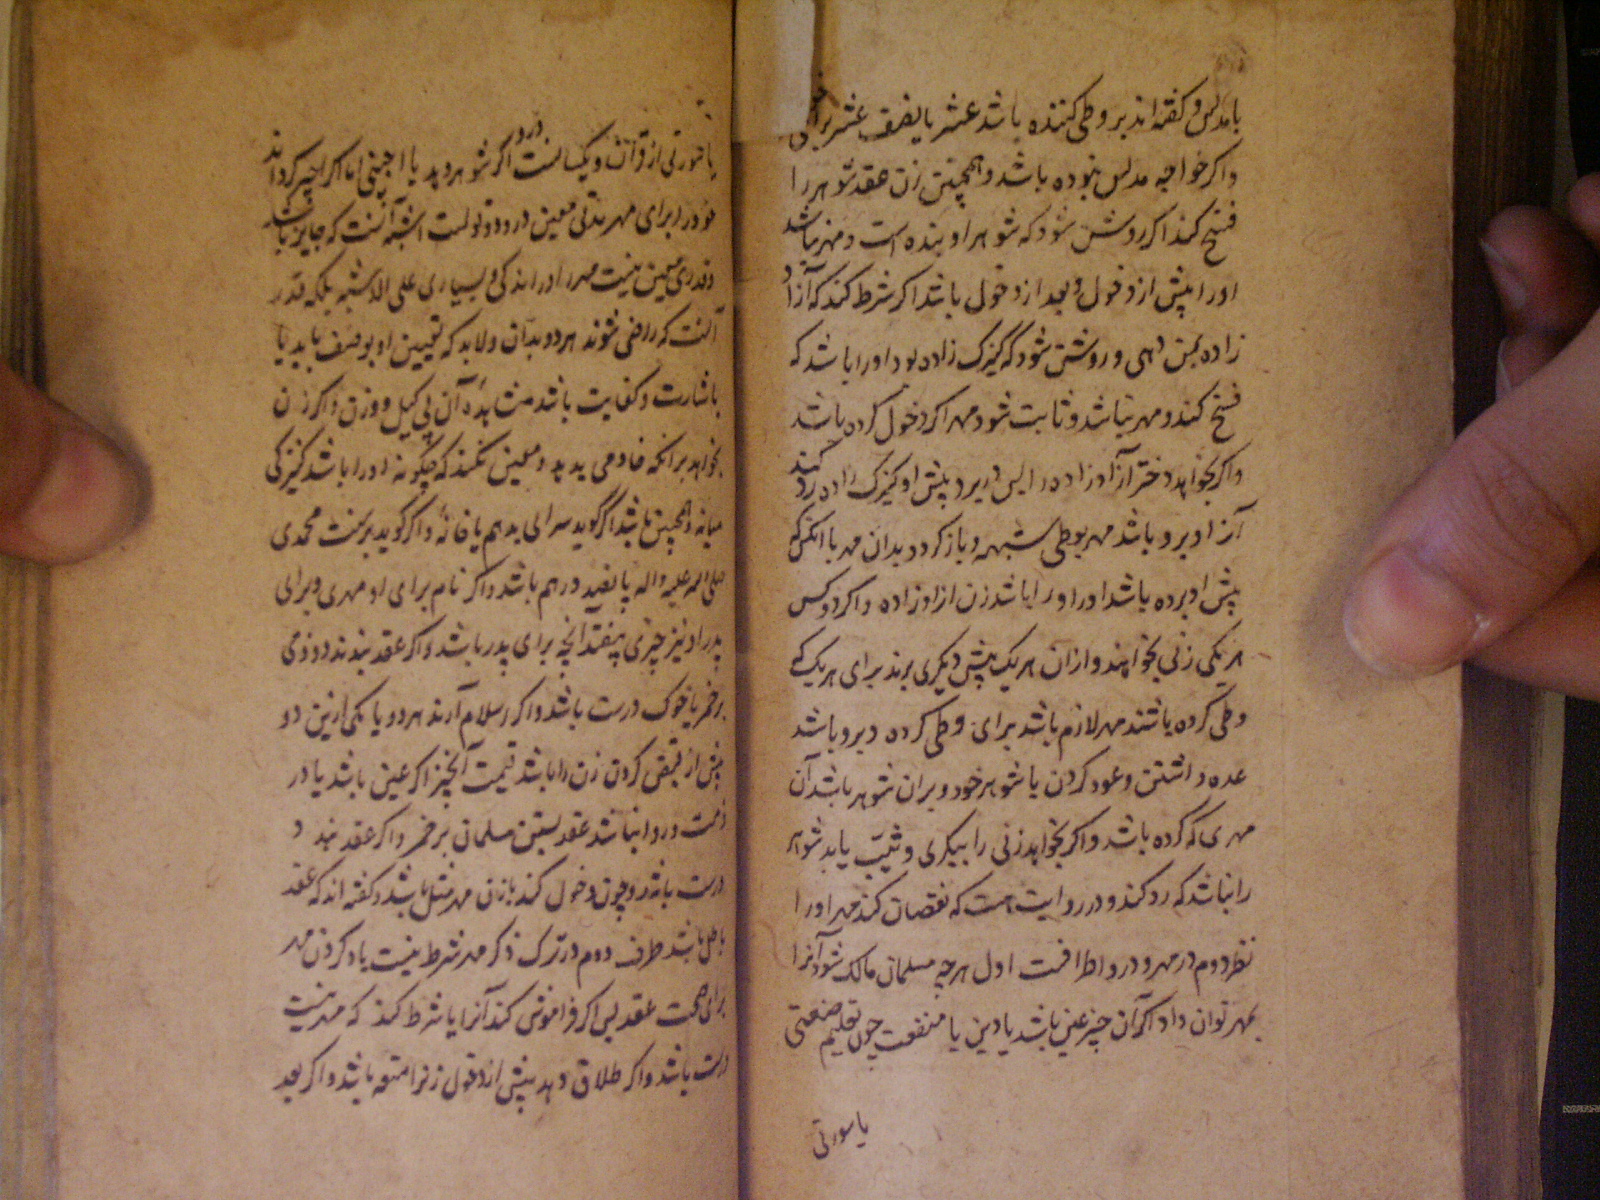 با مدلس و گفته‌اند بر وطی کننده باشد عشر یا نصف عشر برای
واکر خواجه مدلس نبوده باشد و همچنین زن عقد شوهر را
فسخ کند اکر روشن شود که شوهر او بنده است و مهر نباشد
اورا پیش از دخول و بعد از دخول باشد اکر شرط کند که آزاد
زاده بمن دهی و روشن شود که کنیزک زاده بود اورا باشد که
فسخ کند و مهر نباشد و ثابت شود مهر اکر دخول کرده باشد
واکر بخواهد دختر آزاد زاده را پس در برد پیش او کنیزک زاده رد کند
آنرا و برو باشد مهر بوطی شبهه و باز کردد بدان مهر با آنکس که
پیش او برده باشد اورا و را باشد زن ازاد زاده واکر دو کس
هر یکی زنی بخواهند و ازان هر یک پیش دیکری برند برای هر یک که
وطی کرده باشند مهر لازم باشد برای وطی کرده و برو باشد
عده داشتن و عود کردن با شوهر خود و بران شوهر باشد آن
مهری که کرده باشد واکر بخواهد زنی را ببکری و ثیب یابد شوهر
را نباشد که رد کند و در روایت هست که نقصان کند مهر اورا
نظر دوم در مهر و درو اطرافست اول هرچه مسلمان مالک شود آنرا
بمهر توان داد اکر آن چیز عین باشد یا دین یا منفعت چون تعلیم صنعتی
یا سورتی
یا سورتی از قرآن و یکسانست درو اکر شوهر دهد یا اجنبی اما اکر اجیر کرداند
خود را برای مهر مدتی معین درو دو قولست اشبه آنست که جایز باشد
و قدری معین نیست مهر را در اندکی و بسیاری علی الاشبه بلکه قدر
آنست که راضی شوند هر دو بدان و لابد که تعیین او بوصف باید یا
باشارت و کفایت باشد مشاهده آن بی کیل و وزن واکر زن
بخواهد برانکه خادمی بدهد و معین نکند که چکونه اورا باشد کنیزکی
میانه و همچنین باشد اکر کوید سرایی بدهم یا خانه واکر کوید بر سنت محمدی
صلی الله علیه و اله پانصد درهم باشد واکر نام برای او مهری و برای
پدر او نیز چیزی بیفتد آنچه برای پدر باشد واکر عقد بندند دو ذمی
بر خمر یا خوک درست باشد واکر اسلام آرند هر دو یا یکی ازین دو
پیش از قبض کردن زن را باشد قیمت آنچیز اکر عین باشد یا در
ذمت و روا نباشد عقد بستن مسلمان بر خمر واکر عقد بندد
درست باشد و چون دخول کند بازن مهر مثل باشد و گفته‌اند که عقد
باطل باشد طرف دوم در ترک ذکر مهر شرط نیست یاد کردن مهر
برای صحت عقد پس اکر فراموش کند آنرا یا شرط کند که مهر نیست
درست باشد واکر طلاق دهد پیش از دخول زنرا متعه باشد واکر بعد